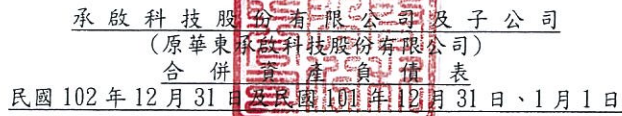 承啟科技股份有限公司及子公司
(原華東承啟科技股份有限公司)
合併資產負債表
民國 102 年 12 月 31 日及民國 101 年 12 月 31 日、1 月 1 日